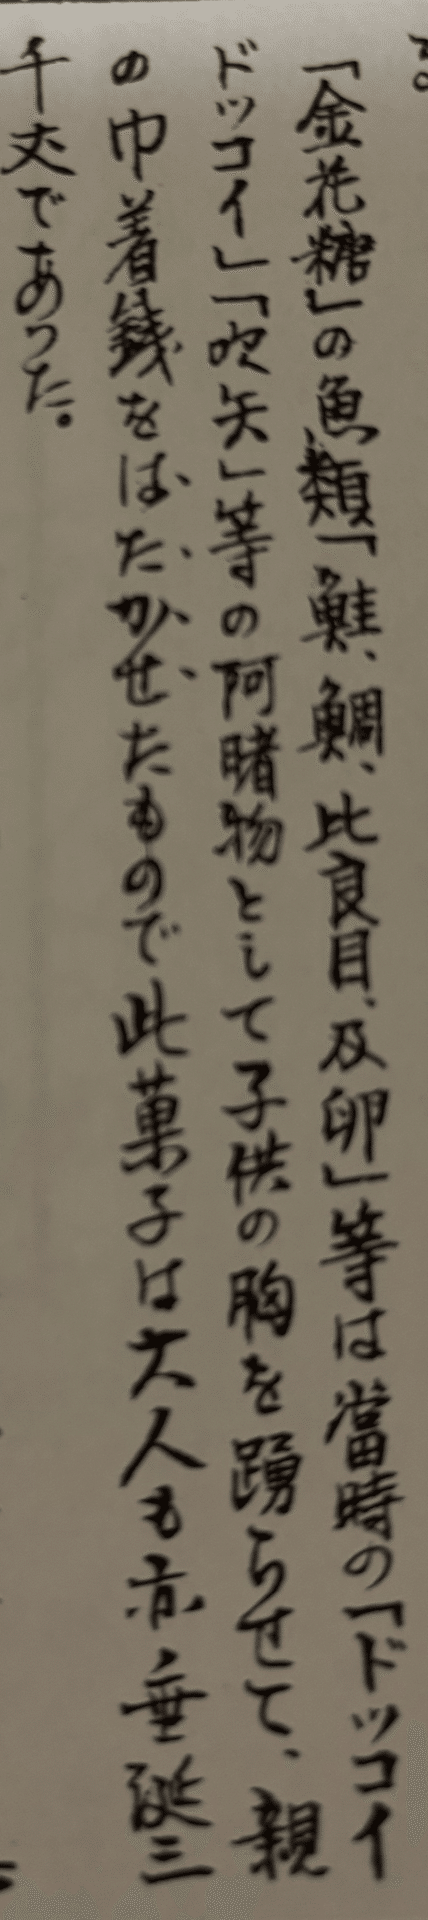 「金花糖」の魚類「鮭、鯛、比良目、及卵」等は當時の「ドッコイ
ドッコイ」「吹矢」等の阿睹物として子供の胸を踴らせて、親
の巾着錢をはたかせたもので此菓子は大人も亦垂涎三
千丈であった。